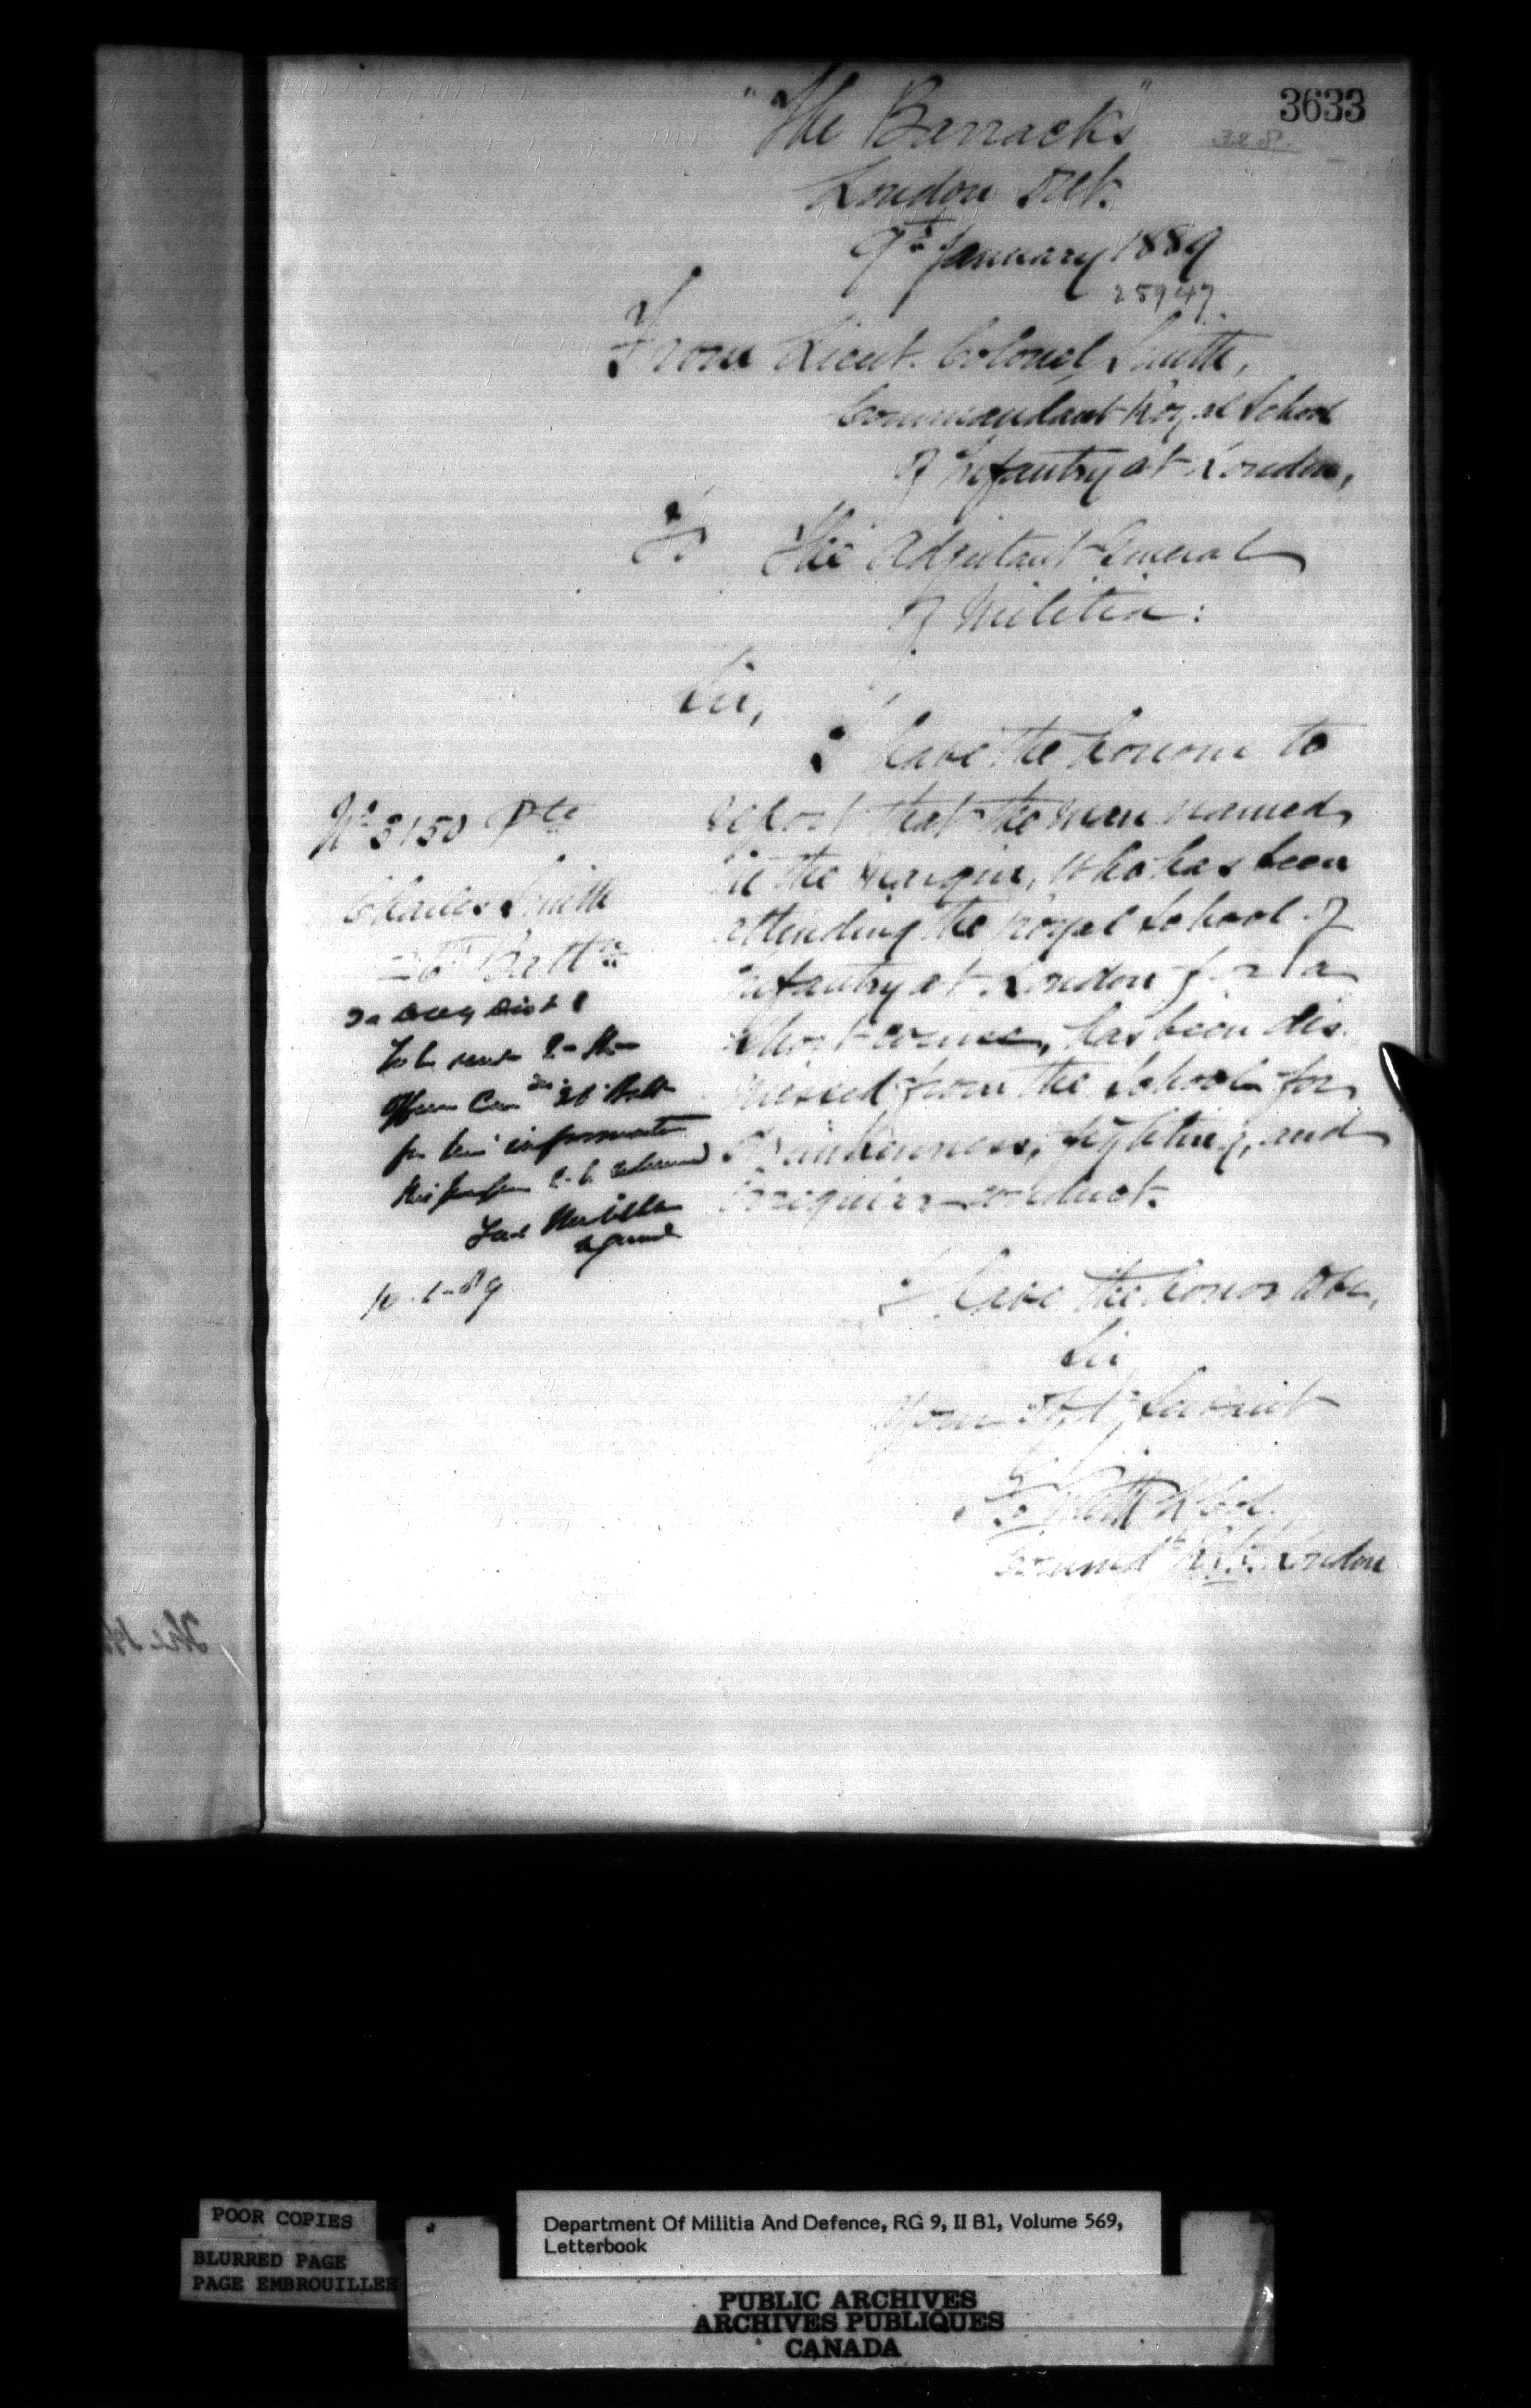 3633
328
"The Barracks"
London Ont.
9th January 1889
25947
From Lieut. Colonel Smith,
Commandant Royal School
of Infantry at London,
To The Adjutant General
of Militia:
Sir,
I have the honour to
report that the man named
in the margin, who has been
attending the Royal School of
Infantry at London for a
short course, has been dis
missed from the School for
drunkenness, fighting, and
irregular conduct.
No 3150 Pte
Charles Smith
26th Battn
To be sent
26 Batt
for his information
10-1-89
I have the honor to be,
Sir
Your Obt Servant
Smith Lt Col.
Commdt R.S.I. London
The
POOR COPIES
BLURRED PAGE
PAGE EMBROUILLEE
Department Of Militia And Defence, RG 9, II B1, Volume 569,
Letterbook
PUBLIC ARCHIVES
ARCHIVES PUBLIQUES
CANADA